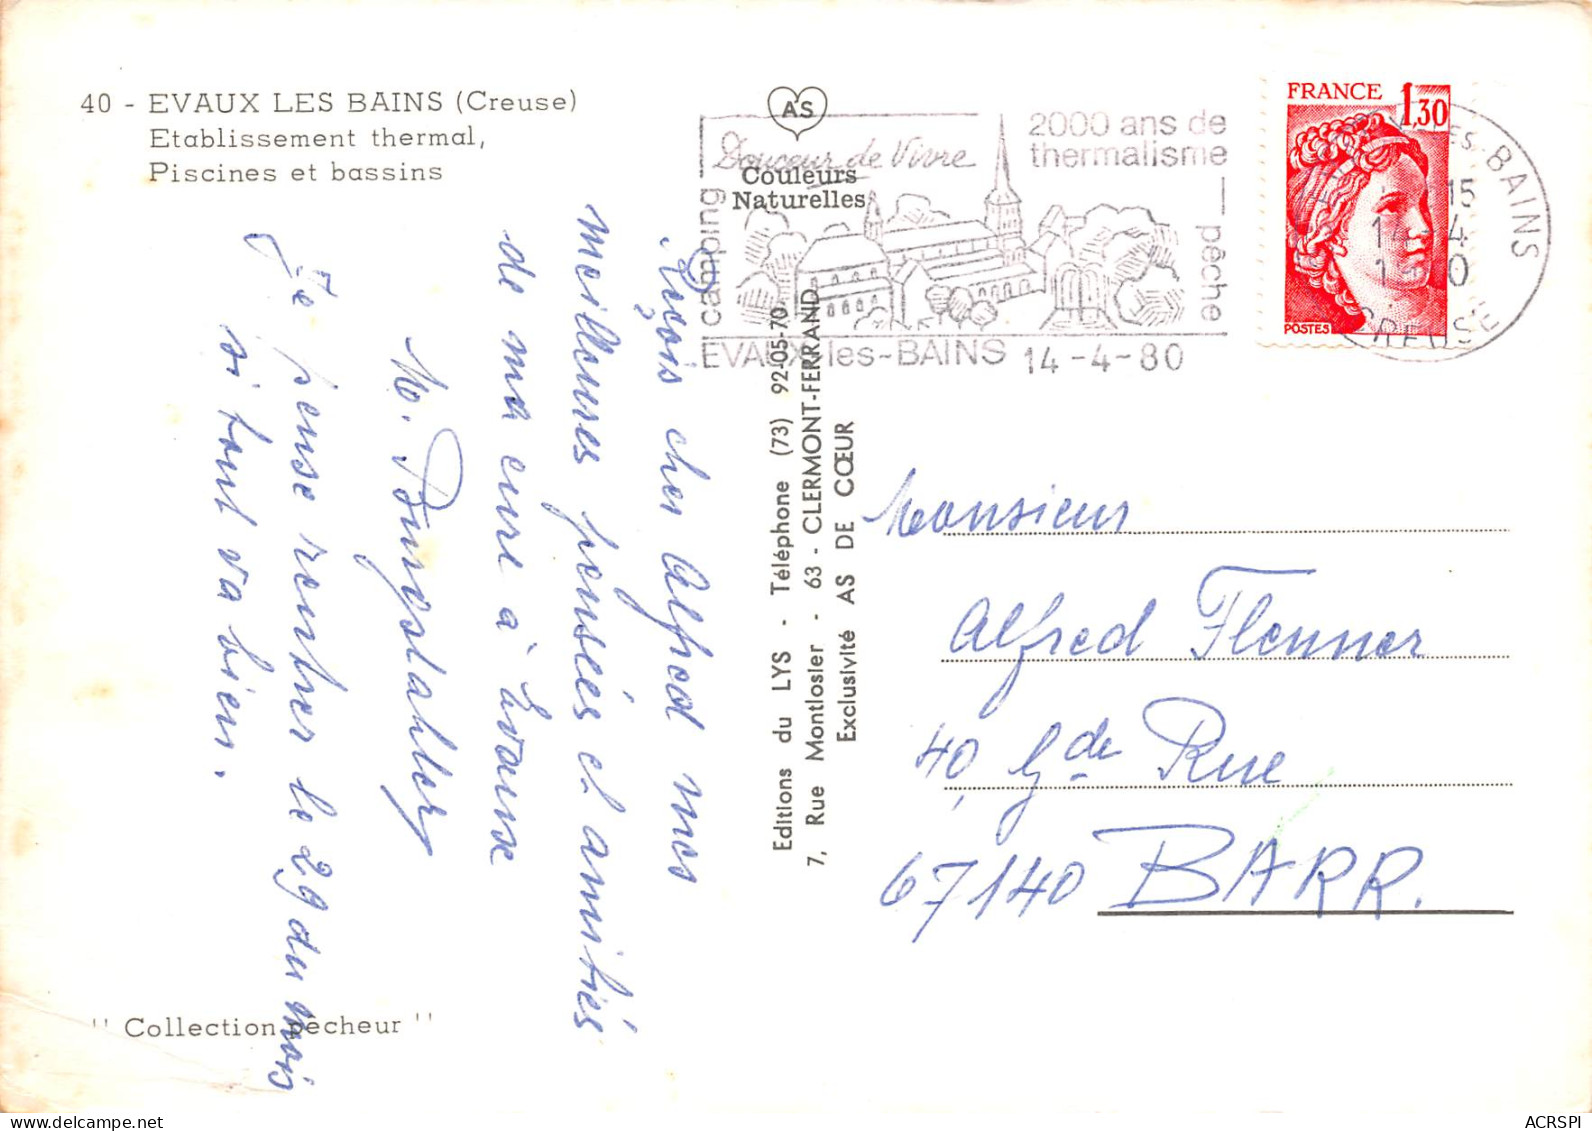 40 - EVAUX LES BAINS (Creuse)
Etablissement thermal,
Piscines et bassins
AS
Couleurs
Naturelles
Douceur de Vivre
2000 ans de
thermalisme
camping
pêche
EVAUX-les-BAINS 14-4-80
FRANCE 1,30
POSTES
les-BAINS
15
14-4
CREUSE
Reçois cher Alfred mes
meilleures pensées et amitiés
de ma cure à Evaux
Je pense rentrer le 29 du mois
si tout va bien.
Editions du LYS - Téléphone (73) 92-05-70
7, Rue Montlosier - 63 - CLERMONT-FERRAND
Exclusivité AS DE CŒUR
Monsieur
Alfred Flenner
40, Gde Rue
67140 BARR.
" Collection pêcheur "
ACRSPI